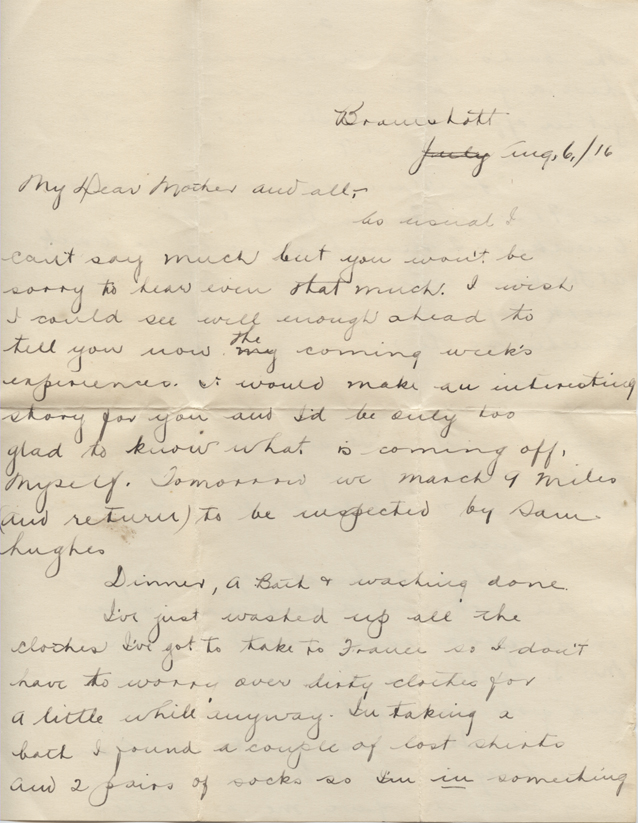 Bramshott
July Aug, 6,/16
My Dear Mother and all,-
As usual I
can't say much but you won't be
sorry to hear even that much. I wish
I could see well enough ahead to
tell you now the my coming week's
experiences. It would make an interesting
story for you and I'd be only too
glad to know what is coming off,
myself. Tomorrow we march 9 miles
(and return) to be inspected by Sam
Hughes
Dinner, a Bath & washing done.
I've just washed up all the
clothes I've got to take to France so I don't
have to worry over dirty clothes for
a little while anyway. In taking a
bath I found a couple of lost shirts
and 2 pairs of socks so I'm in something